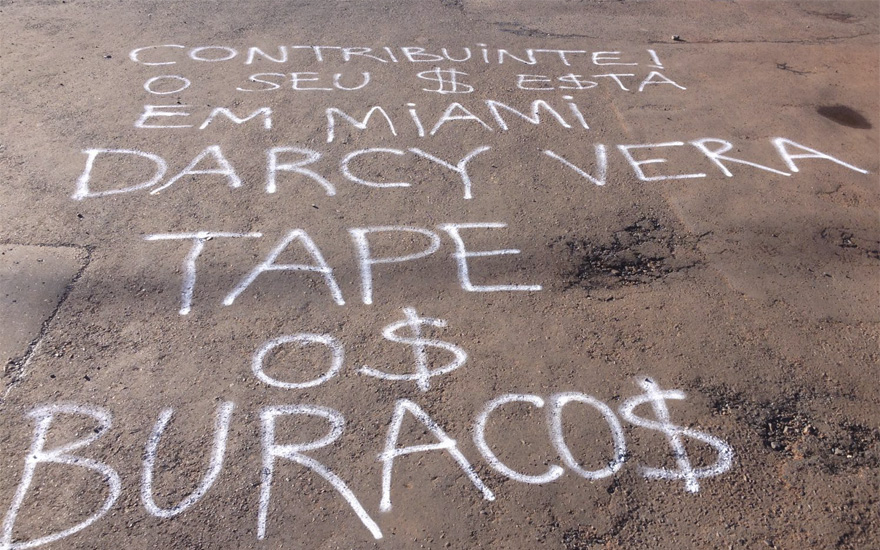 CONTRIBUiNTE!
O SEU $ E$TÁ
EM MiAMi
DARCY VERA
TAPE
O$
BURACO$